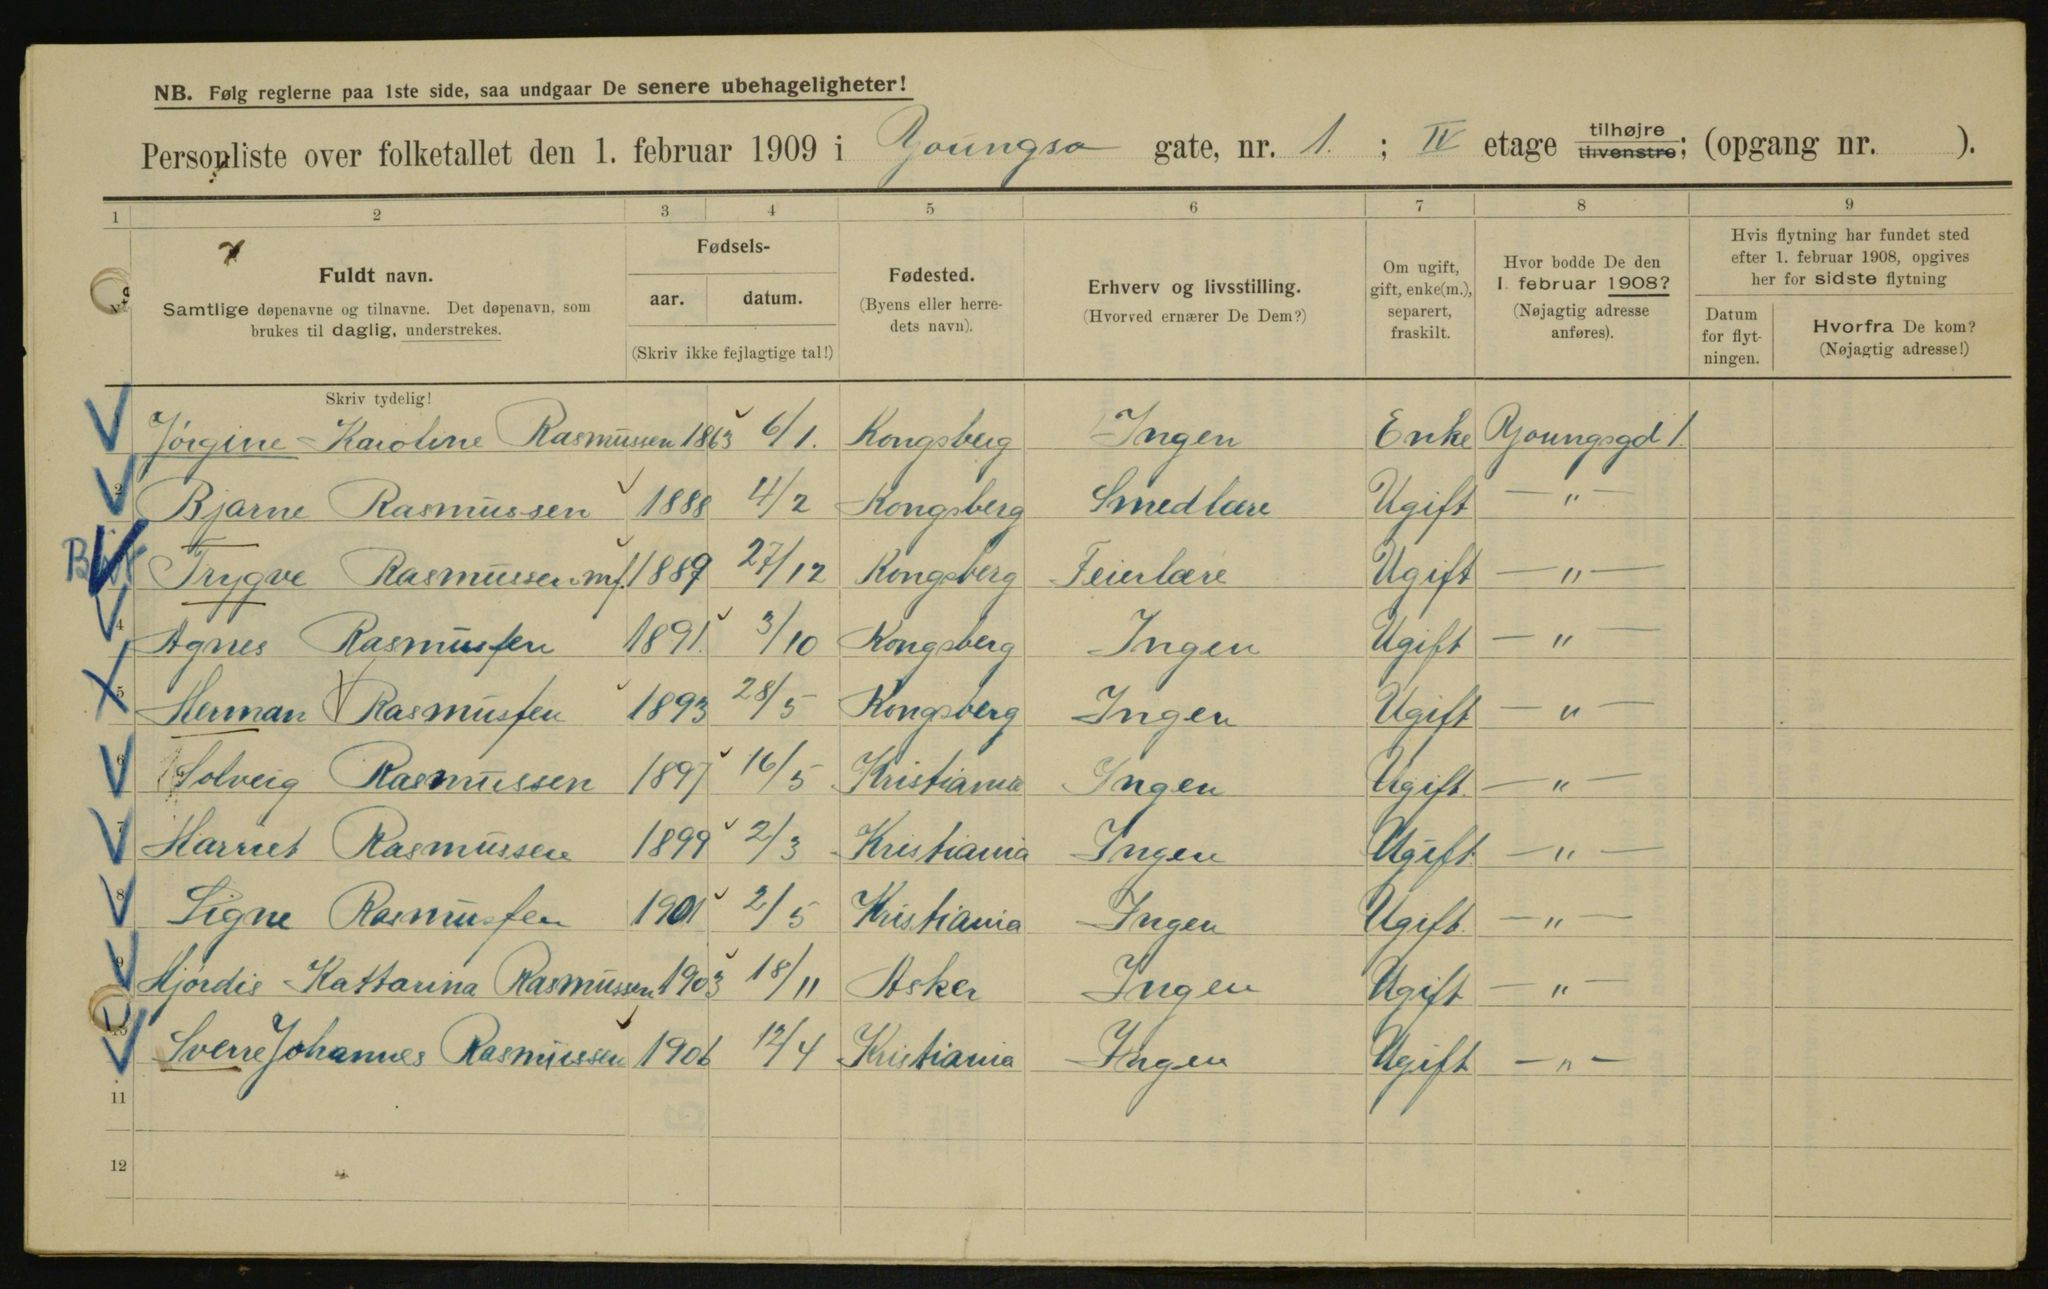 NB. Følg reglerne paa 1ste side, saa undgaar De senere ubehageligheter!
Personliste over folketallet den 1. februar 1909 i Youngsg gate, nr. 1. ; IV etage tilhøjre tilvenstre; (opgang nr. ).
1 2 3 4 5 6 7 8 9
Fuldt navn.
Samtlige døpenavne og tilnavne. Det døpenavn, som
brukes til daglig, understrekes.
Fødsels-
aar. datum.
(Skriv ikke fejlagtige tal!)
Fødested.
(Byens eller herre-
dets navn).
Erhverv og livsstilling.
(Hvorved ernærer De Dem?)
Om ugift,
gift, enke(m.),
separert,
fraskilt.
Hvor bodde De den
1. februar 1908?
(Nøjagtig adresse
anføres).
Hvis flytning har fundet sted
efter 1. februar 1908, opgives
her for sidste flytning
Datum
for flyt-
ningen.
Hvorfra De kom?
(Nøjagtig adresse!)
Skriv tydelig!
Jørgine Karoline Rasmussen 1863 6/1. Kongsberg Ingen Enke Youngsgd 1.
2 Bjarne Rasmussen 1888 4/2 Kongsberg Smedlære Ugift — " —
Trygve Rasmussen mf. 1889 27/12 Kongsberg Feierlære Ugift — " —
4 Agnes Rasmussen 1891. 3/10 Kongsberg Ingen Ugift — " —
5 Herman Rasmussen 1893 28/5 Kongsberg Ingen Ugift — " —
6 Solveig Rasmussen 1897 16/5 Kristiania Ingen Ugift. — " —
7 Harriet Rasmussen 1899 2/3 Kristiania Ingen Ugift. — " —
8 Signe Rasmussen 1901 2/5 Kristiania Ingen Ugift. — " —
9 Hjørdis Kattarina Rasmussen 1903 18/11 Asker Ingen Ugift — " —
10 Sverre Johannes Rasmussen 1906 12/4 Kristiania Ingen Ugift — " —
11
12